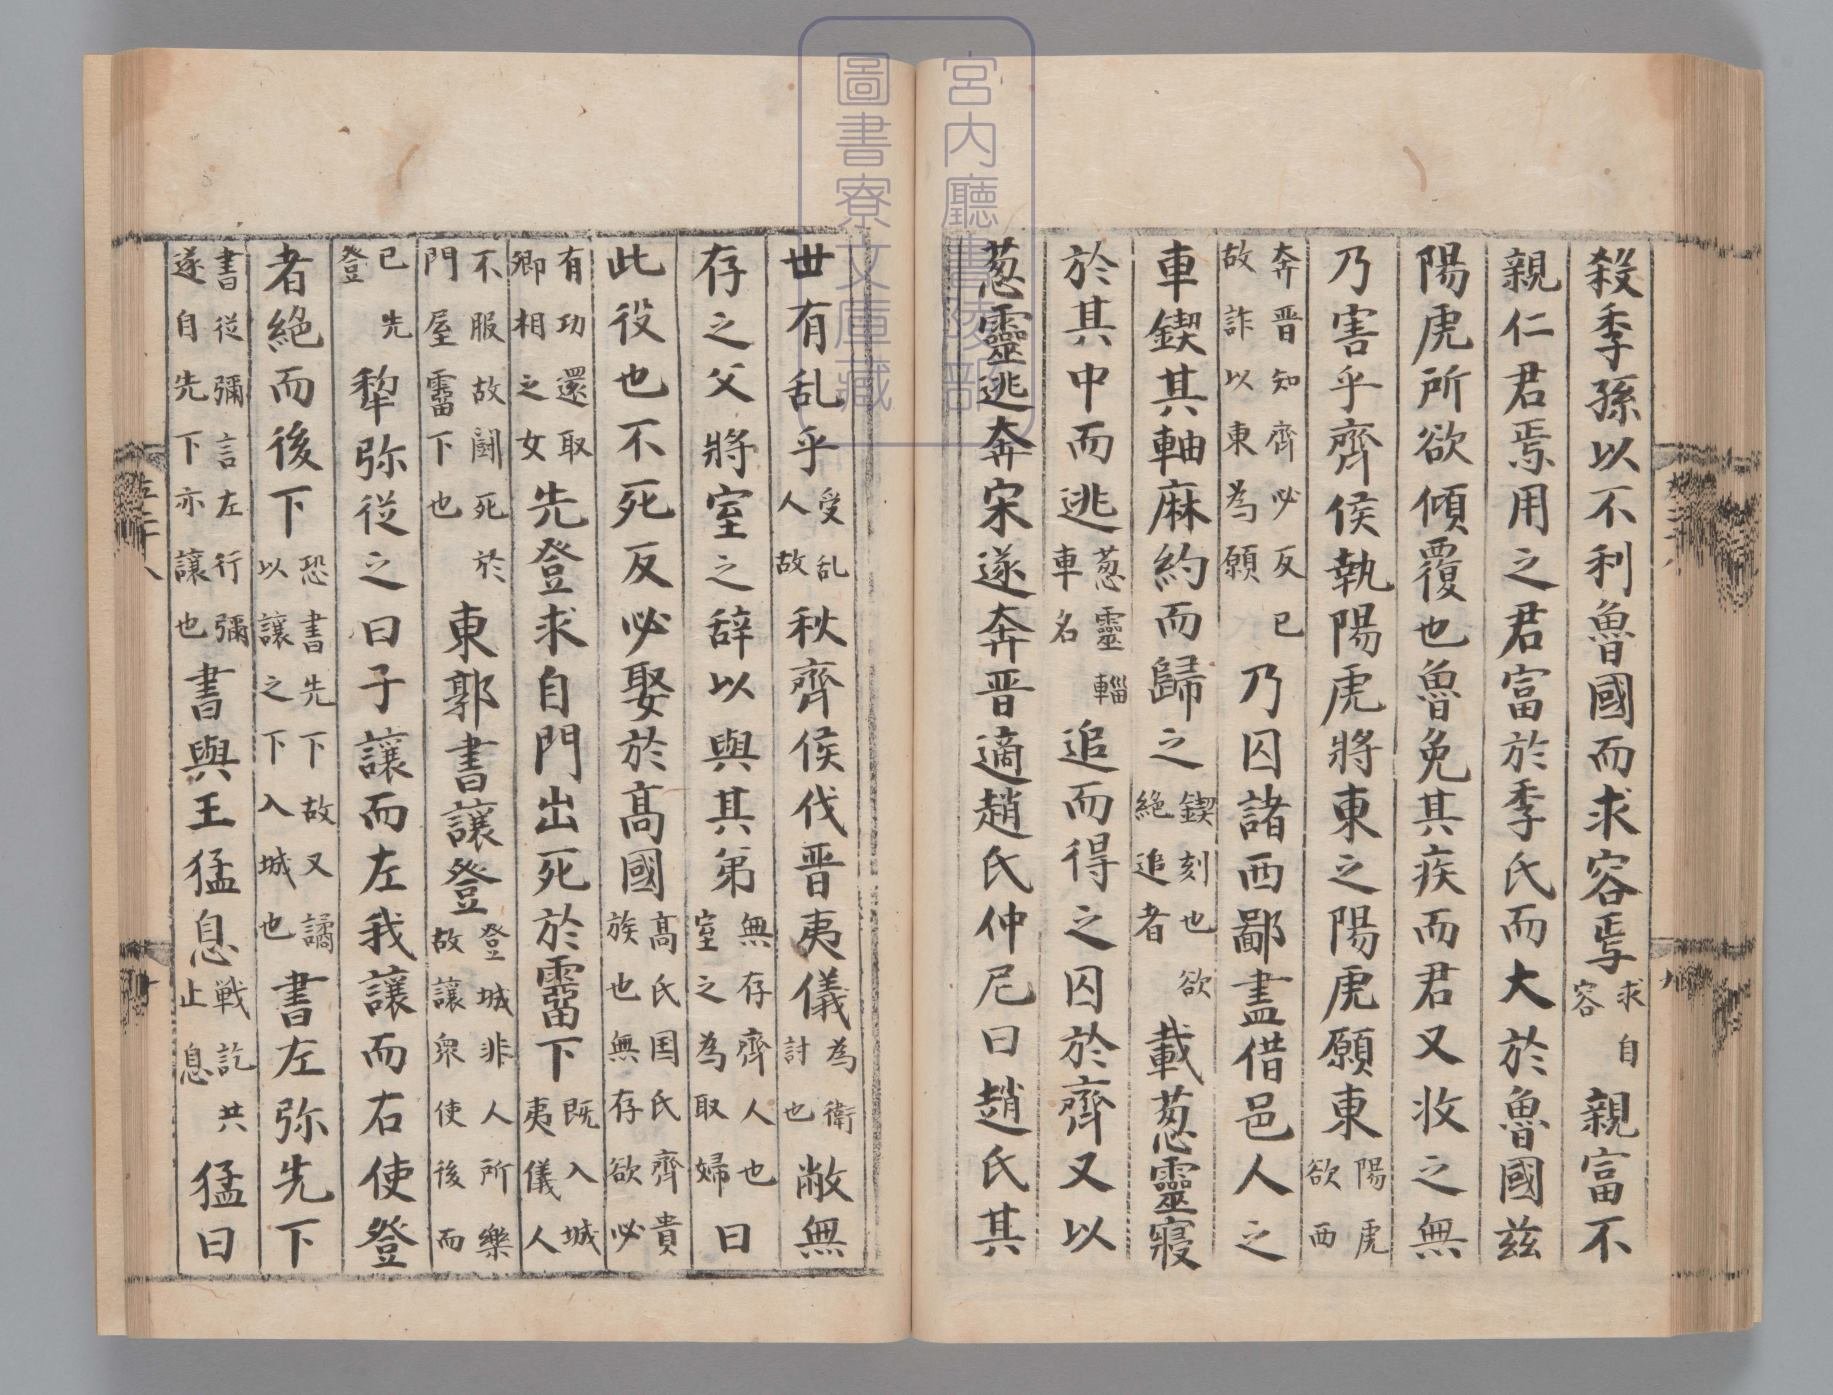 殺季孫以不利魯國而求容焉求自容親富不
親仁君焉用之君富於季氏而大於魯國玆
陽虎所欲傾覆也魯免其疾而君又收之無
乃害乎齊侯執陽虎將東之陽虎願東陽虎欲西
奔晋知齊必反已故詐以東為願乃囚諸西鄙盡借邑人之
車鍥其軸麻約而歸之鍥刻也欲絶追者載葱靈寢
於其中而逃葱靈輜車名追而得之囚於齊又以
葱靈逃奔宋遂奔晋適趙氏仲尼曰趙氏其
世有乱乎受乱人故秋齊侯伐晋夷儀為衛討也敝無
存之父將室之辞以與其弟無存齊人也室之為取婦曰
此役也不死反必娶於髙國髙氏国氏齊貴族也無存欲必
有功還取卿相之女先登求自門出死於霤下既入城夷儀人
不服故鬬死於門屋霤下也東郭書讓登登城非人所樂故讓衆使後而
已先登犂弥從之曰子讓而左我讓而右使登
者絶而後下恐書先下故又譎以讓之下入城也書左弥先下
書從彌言左行彌遂自先下亦讓也書與王猛息戦訖共止息猛曰
宮内廳書陵部
圖書寮文庫藏